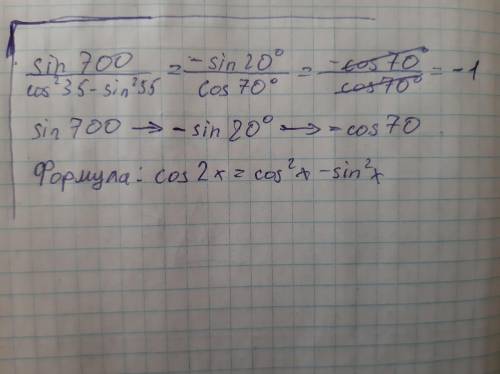 sin 700 / cos²35 - sin²35 = -sin 20° / cos 70° = -cos 70° / cos 70° = -1
sin 700 → -sin 20° → -cos 70
Формула: cos 2x = cos²x - sin²x